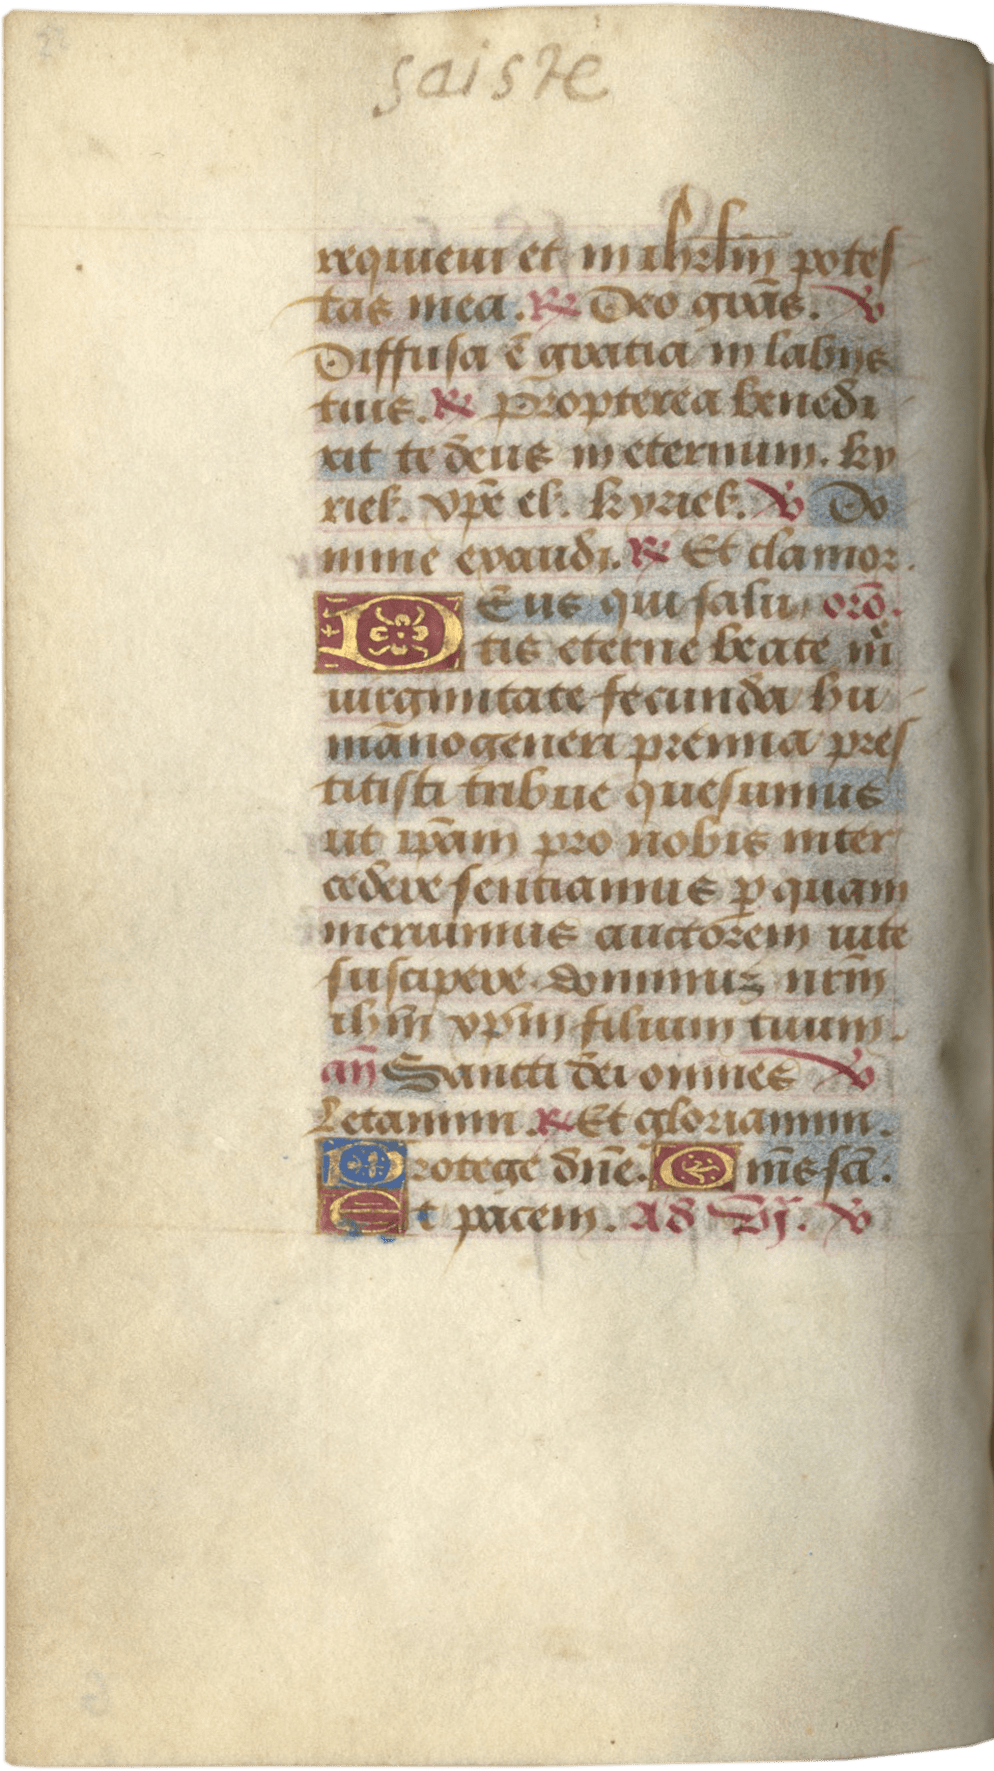 saiste
requieui et in ihrl̄m potes
tas mea. ℟ Deo gr̄as. ℣
Diffusa ē gratia in labijs
tuis. ℟ Propterea benedi
xit te deus in eternum. ky
riel. xp̄e el. kyriel. ℣ Do
mine exaudi. ℟ Et clamor.
Deus qui salu orō.
tis eterne beate m̄
uirginitate fecunda hu
mano generi premia pres
titisti tribue quesumus
ut ip̄am pro nobis inter
cedere sentiamus ꝑ quam
meruimus auctorem uite
suscipere dominuz nr̄m
ihm̄ xp̄m filium tuum.
an̄ Sancti dei omnes ℣
Letamini. ℟ Et gloriamini.
Protege dn̄e. Om̄s sc̄i.
Et pacem. Ad